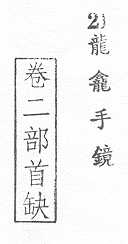 2) 龍龕手鏡
卷二部首缺